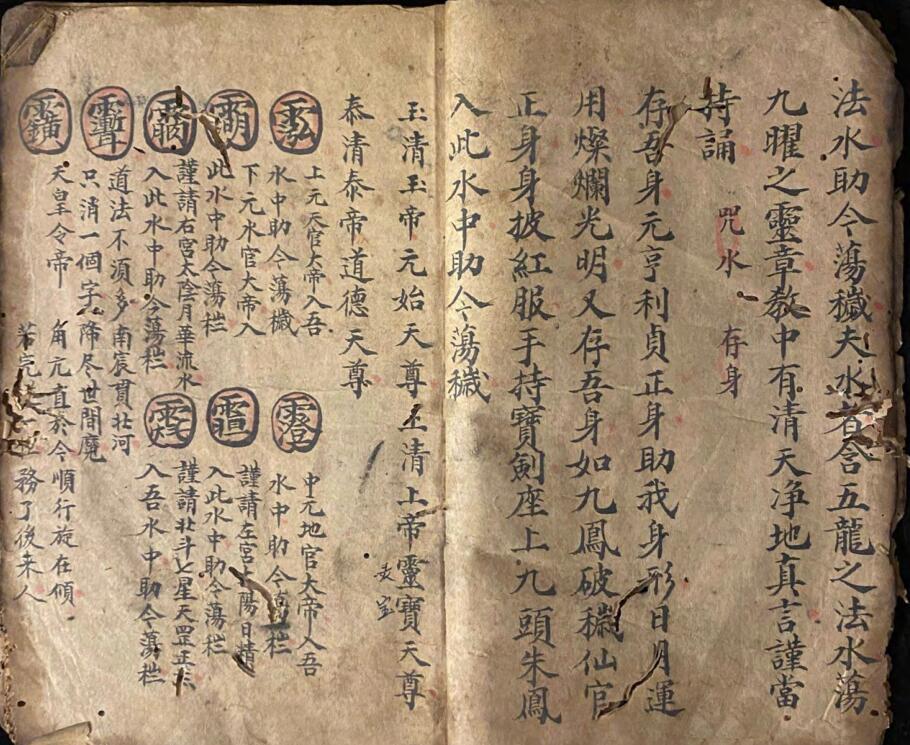 法水助今蕩穢夫水者含五龍之法水蕩
九曜之靈章教中有清天净地真言謹當
持誦 咒水 存身
存吾身元亨利貞正身助我身形日月運
用燦爛光明又存吾身如九鳳破穢仙官
正身身披紅服手持寶劍座上九頭朱鳳
入此水中助今蕩穢
玉清玉帝元始天尊 上清上帝靈寶天尊
泰清泰帝道德天尊
上元天官大帝入吾
水中助今蕩穢
中元地官大帝入吾
水中助今蕩栏
下元水官大帝入
此水中助今蕩栏
謹請左宮太陽日精
入此水中助今蕩栏
謹請右宮太陰月華流水
入此水中助今蕩栏
謹請北斗七星天罡正炁
入吾水中助今蕩栏
道法不須多 南宸貫北河
只消一個字 降尽世間魔
天皇令帝 角亢直於今順行旋在傾
務了後来人